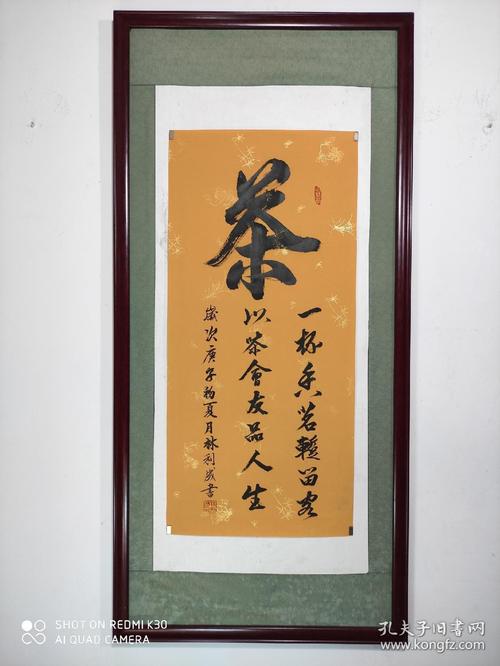 茶
一杯香茗暫留客
以茶會友品人生
歲次庚子初夏月林利書
SHOT ON REDMI K30
AI QUAD CAMERA
孔夫子旧书网
www.kongfz.com